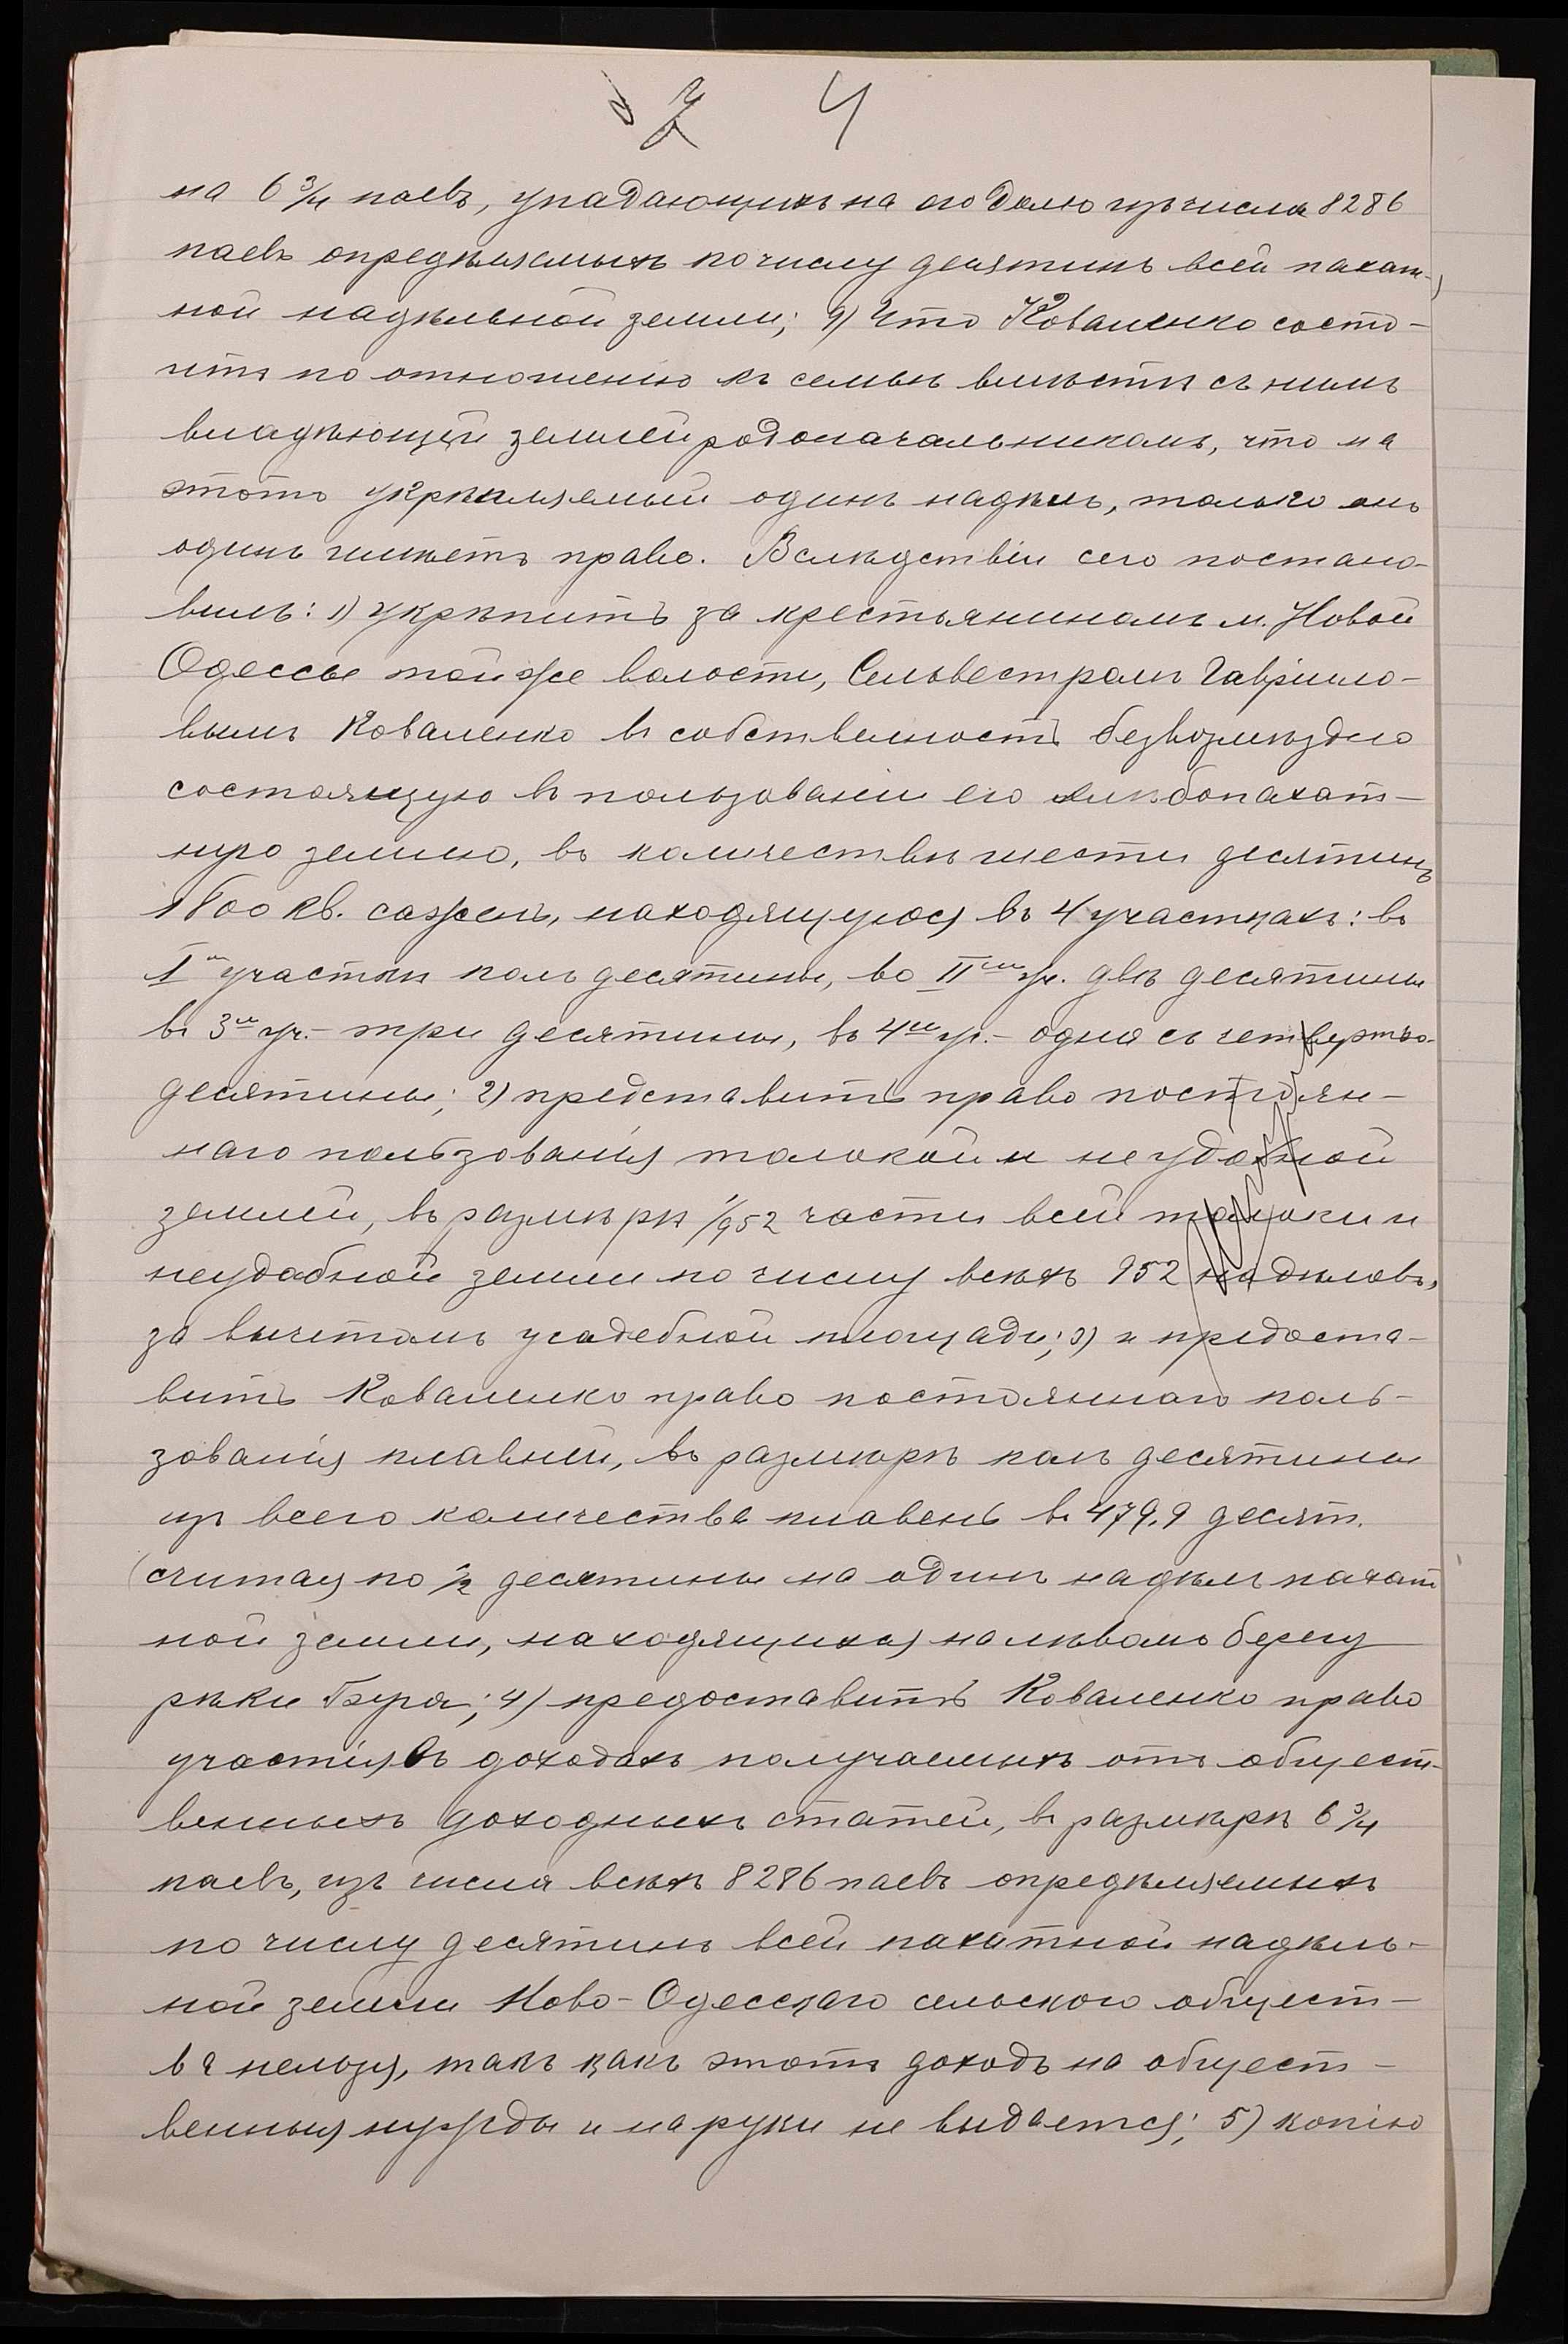 2 4
на 6 3/4 паевъ, упадающихъ на его долю изъ числа 8286
паевъ опредѣляемыхъ по числу десятинъ всей пахат-
ной надѣльной земли; 9) Что Коваленко состо-
итъ по отношенію къ семьѣ вмѣстѣ съ нимъ
владѣющей землей родоначальникомъ, что на
этотъ укрѣпляемый одинъ надѣлъ, только онъ
одинъ имѣетъ право. Вслѣдствіи сего постано-
вилъ: 1) укрѣпить за крестьяниномъ м. Новой
Одессы той же волости, Сельвестромъ Гаврило-
вымъ Коваленко въ собственность безвозмездно
состоящую въ пользованіи его хлѣбопахат-
ную землю, въ количествѣ шести десятинъ
1800 кв. сажень, находящуюся въ 4 участкахъ: въ
I м участкѣ полъ десятины, во II мъ уч. двѣ десятины
въ 3 м уч.- три десятины, въ 4 м уч.- одна съ четвертью
десятины; 2) представить право постоян-
наго пользованія толокой и неудобной
землей, въ размѣрѣ 1/952 части всей толоки и
неудобной земли по числу всѣхъ 952 надѣловъ,
за вычетомъ усадебной площади; 3) и предоста-
вить Коваленко право постояннаго поль-
зованія плавней, въ размѣрѣ полъ десятины
изъ всего количества плавень въ 479,9 десят.
(считая по 1/2 десятины на одинъ надѣлъ пахат
ной земли, находящихся на лѣвомъ берегу
рѣки Буга; 4) предоставить Коваленко право
участія въ доходахъ получаемыхъ отъ общест-
венныхъ доходныхъ статей, въ размѣрѣ 6 3/4
паевъ, изъ числа всѣхъ 8286 паевъ опредѣляемыхъ
по числу десятинъ всей пахатной надѣль-
ной земли Ново-Одесскаго сельского общест-
ва нельзя, такъ какъ этотъ доходъ на общест-
венныя нужды и на руки не выдается; 5) копію